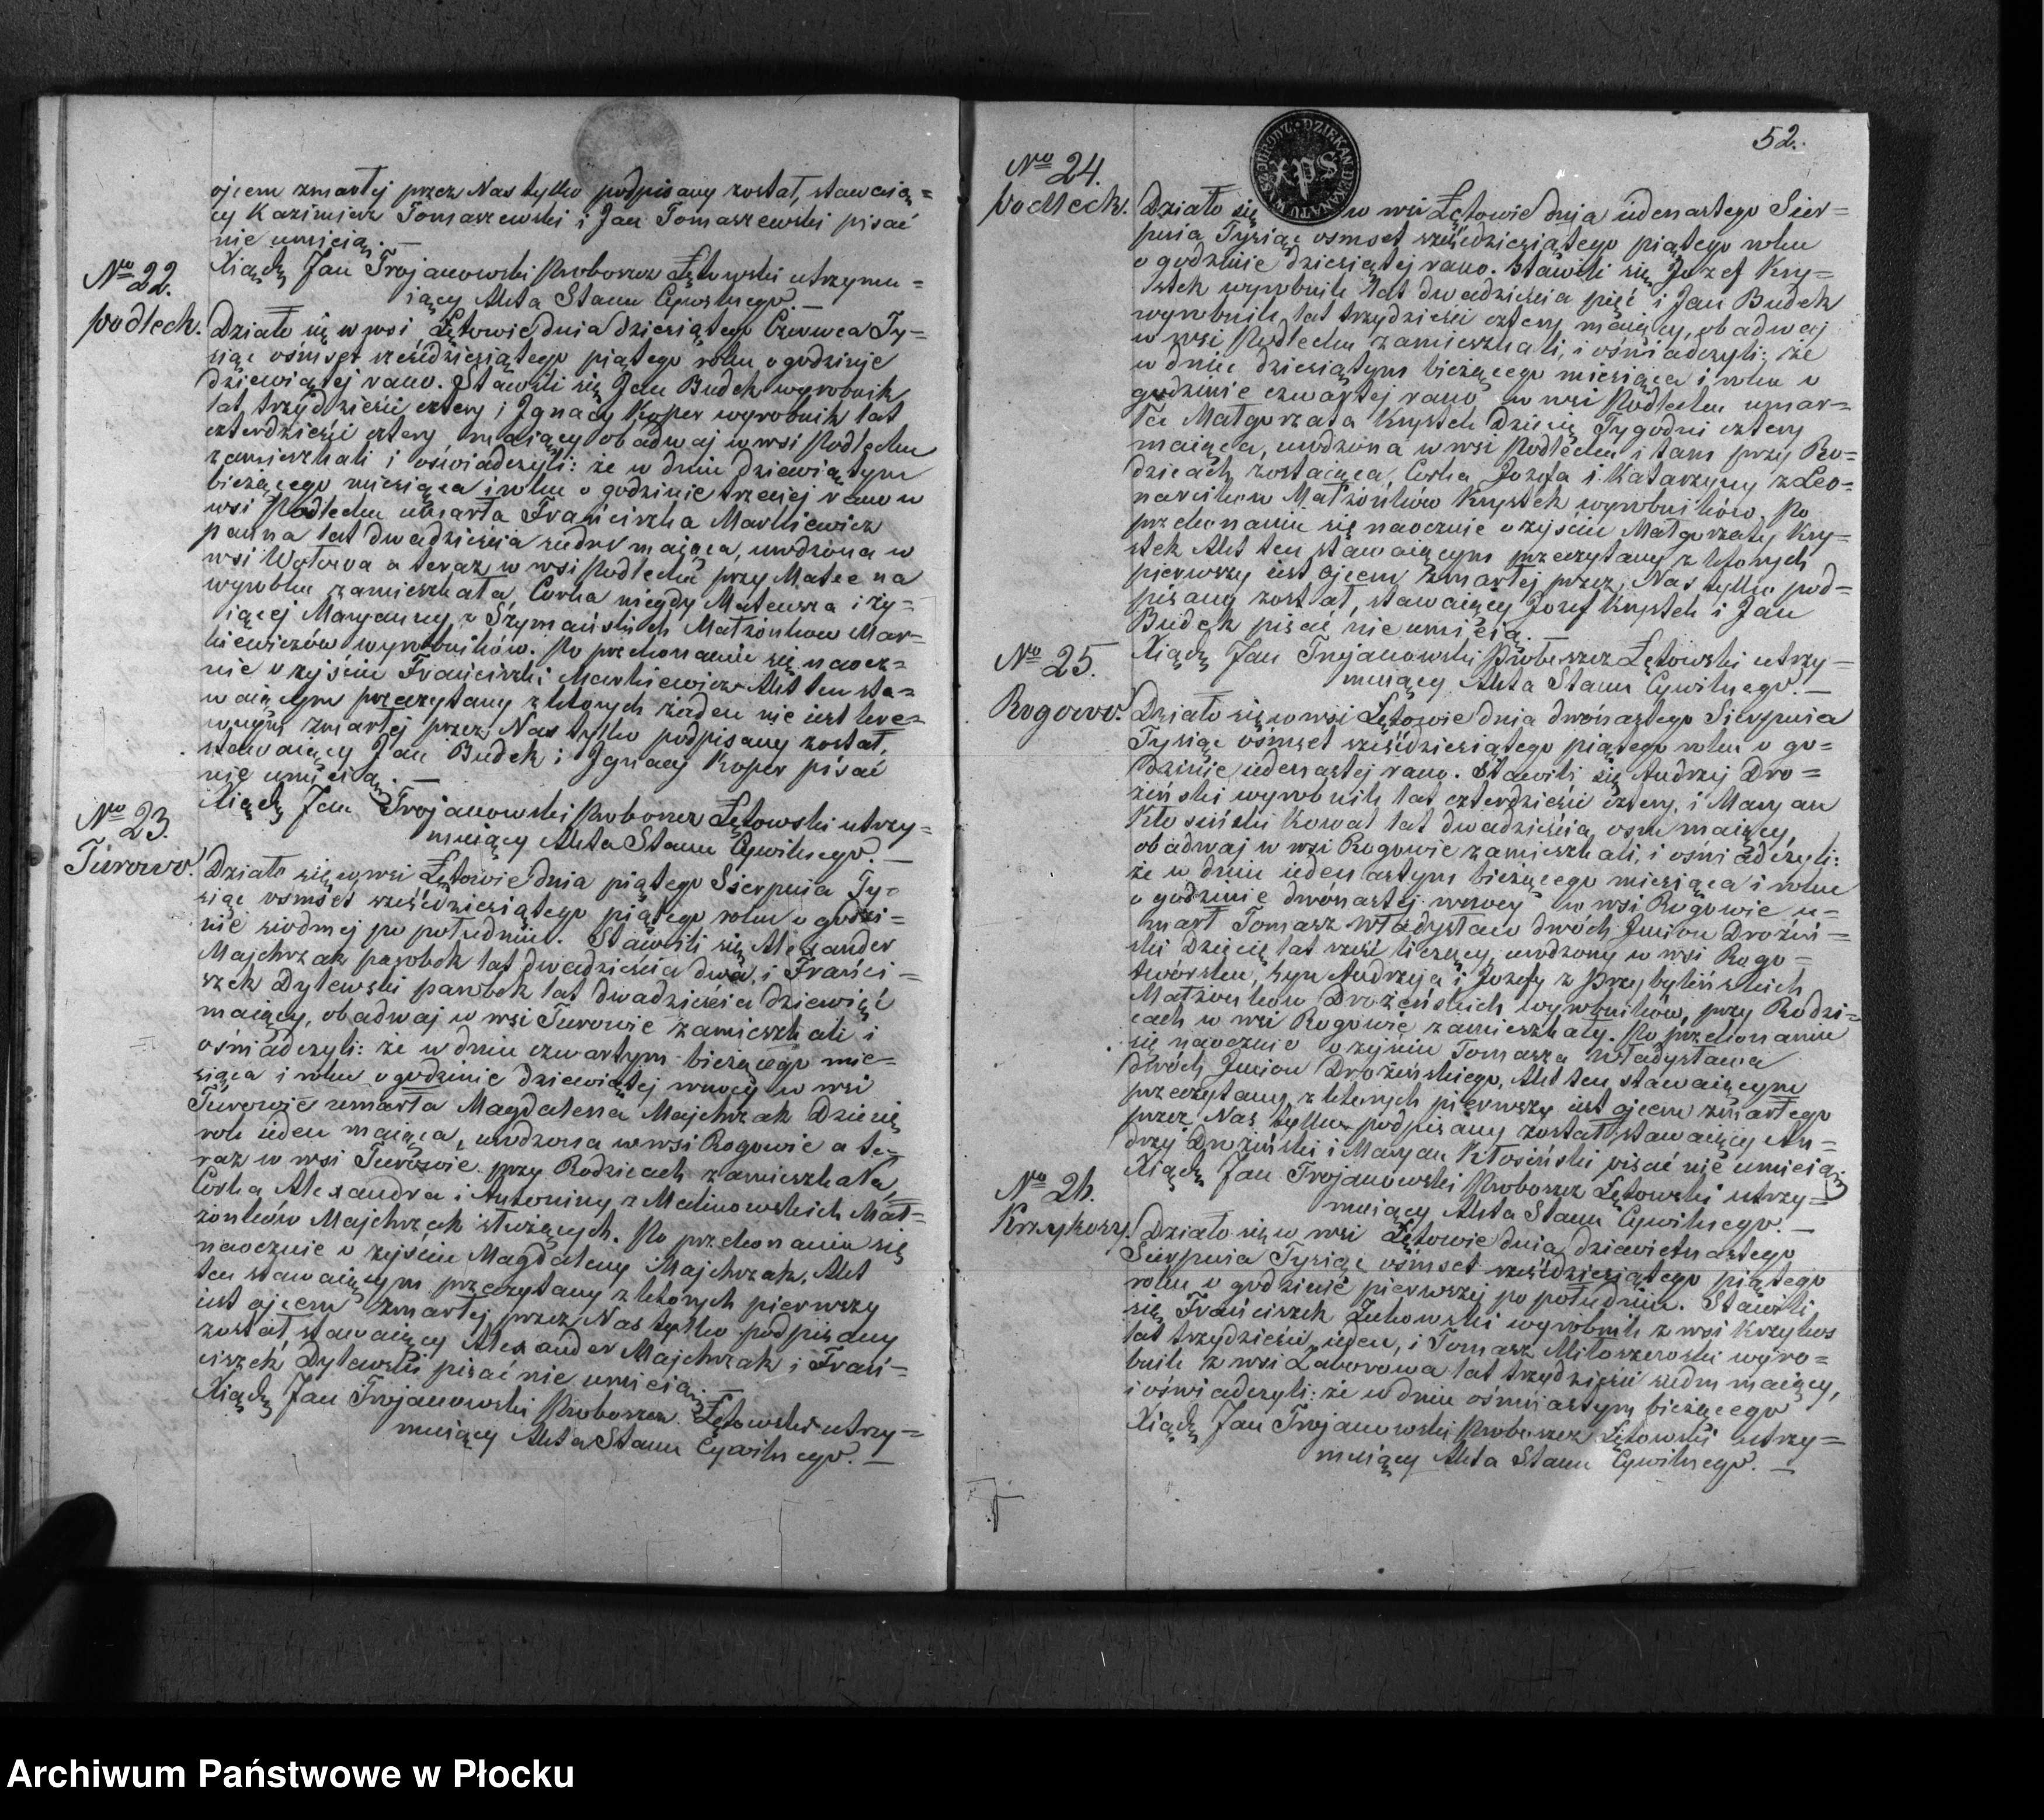 ojcem zmartej przez Nas tylko podpisany został, stawaią=
cy Kazimierz Tomaszewski i Jan Tomaszewski pisać
nie umieią. —
Xiądz Jan Trojanowski Proboszcz Łętowski utrzymu=
iący Akta Stanu Cywilnego. —
No 22.
Podleck.
Działo się w wsi Łętowie dnia dziesiątego Czerwca Ty=
siąc ośmset sześćdziesiątego piątego roku o godzinie
dziewiątej rano. Stawili się Jan Budek wyrobnik
lat trzydzieści cztery i Jgnacy Koper wyrobnik lat
czterdzieści cztery maiący obadwaj w wsi Podlecku
zamieszkali i oświadczyli: że w dniu dziewiątym
bieżącego miesiąca i roku o godzinie trzeciej rano w
wsi Podlecku umarła Franciszka Markiewicz
panna lat dwadzieścia siedm maiąca, urodzona w
wsi a teraz w wsi Podlecku przy Matce na
wyrobku zamieszkała, Corka niegdy Mateusza i ży=
iącej Maryanny z Szymańskich Małżonkow Mar=
kiewiczów wyrobników. Po przekonaniu się naocz=
nie o zejściu Franciszki Markiewicz Akt ten sta=
waiącym przeczytany z ktorych żaden nie iest kre=
wnym zmartej przez Nas tylko podpisany został,
stawaiący Jan Budek i Jgnacy Koper pisać
nie umieią. —
Xiądz Jan Trojanowski Proboszcz Łętowski utrzy=
muiący Akta Stanu Cywilnego. —
No 23.
Turowo.
Działo się w wsi Łętowie dnia piątego Sierpnia Ty=
siąc ośmset sześćdziesiątego piątego roku o godzi=
nie siodmej po południu. Stawili się Alexander
Majchrzak parobek lat dwadzieścia dwa, i Franci=
szek Dylewski parobek lat dwadzieścia dziewięć
maiący, obadwaj w wsi Turowie zamieszkali i
oświadczyli: że w dniu czwartym bieżącego mie=
siąca i roku o godzinie dziewiątej wnocy w wsi
Turowie umarła Magdalena Majchrzak Dziecię
rok ieden maiąca, urodzona w wsi Rogowie a te=
raz w wsi Turowie przy Rodzicach zamieszkała,
Corka Alexandra i Antoniny z Malinowskich Mał=
żonków Majchrzak służących. Po przekonaniu się
naocznie o zejściu Magdaleny Majchrzak, Akt
ten stawaiącym przeczytany z ktorych pierwszy
iest ojcem zmartej przez Nas tylko podpisany
został, stawaiący Alexander Majchrzak i Fran=
ciszek Dylewski pisać nie umieią.
Xiądz Jan Trojanowski Proboszcz Łętowski utrzy=
muiący Akta Stanu Cywilnego. —
52.
No 24.
Podleck.
Działo się w wsi Łętowie dnia iedenastego Sier=
pnia Tysiąc osmset sześćdziesiątego piątego roku
o godzinie dziesiątej rano. Stawili się Jozef Kry=
stek wyrobnik lat dwadzieścia pięć i Jan Budek
wyrobnik lat trzydzieści cztery maiący, obadwaj
w wsi Podlecku zamieszkali, i oświadczyli: że
w dniu dziesiątym bieżącego miesiąca i roku o
godzinie czwartej rano w wsi Podlecku umar=
ła Małgorzata Krystek Dziecię Tygodni cztery
maiąca, urodzona w wsi Podlecku i tam przy Ro=
dzicach zostaiąca, Corka Jozefa i Katarzyny z Leo=
narcików Małżonków Krystek wyrobników. Po
przekonaniu się naocznie o zejściu Małgorzaty Kry=
stek Akt ten stawaiącym przeczytany z ktorych
pierwszy iest ojcem zmartej przez Nas tylko pod=
pisany został, stawaiący Jozef Krystek i Jan
Budek pisać nie umieią. —
Xiądz Jan Trojanowski Proboszcz Łętowski utrzy=
muiący Akta Stanu Cywilnego. —
No 25.
Rogowo.
Działo się w wsi Łętowie dnia dwónastego Sierpnia
Tysiąc ośmset sześćdziesiątego piątego roku o go=
dzinie iedenastej rano. Stawili się Andrzej Dro=
ziński wyrobnik lat czterdzieści cztery, i Maryan
Kłosiński Kowal lat dwadzieścia osm maiący,
obadwaj w wsi Rogowie zamieszkali, i oświadczyli:
że w dniu iedenastym bieżącego miesiąca i roku
o godzinie dwónastej wnocy w wsi Rogowie u=
marł Tomasz Władysław dwóch Jmion Droziń=
ski Dziecię lat sześć liczący, urodzony w wsi Rogo=
twórsku, syn Andrzeja i Jozefy z Przybylińskich
Małżonków Drozińskich wyrobników, przy Rodzi=
cach w wsi Rogowie zamieszkały. Po przekonaniu
się naocznie o zejściu Tomasza Władysława
dwóch Jmion Drozińskiego, Akt ten, stawaiącym
przeczytany z ktorych pierwszy iest ojcem zmartego
przez Nas tylko podpisany został, stawaiący An=
drzy Droziński i Maryan Kłosiński pisać nie umieią.
Xiądz Jan Trojanowski Proboszcz Łętowski utrzy=
muiący Akta Stanu Cywilnego. —
No 26.
Krzykosy.
Działo się w wsi Łętowie dnia dziewietnastego
Sierpnia Tysiąc ośmset sześćdziesiątego piątego
roku o godzinie pierwszej po południu. Stawili
się Franciszek Żukowski wyrobnik z wsi Krzykos
lat trzydzieści ieden, i Tomasz Miłoszewski wyro=
bnik z wsi Laborowa lat trzydzieści siedm maiący,
i oświadczyli: że w dniu ośmnastym bieżącego
Xiądz Jan Trojanowski Proboszcz Łętowski utrzy=
muiący Akta Stanu Cywilnego. —
Archiwum Państwowe w Płocku